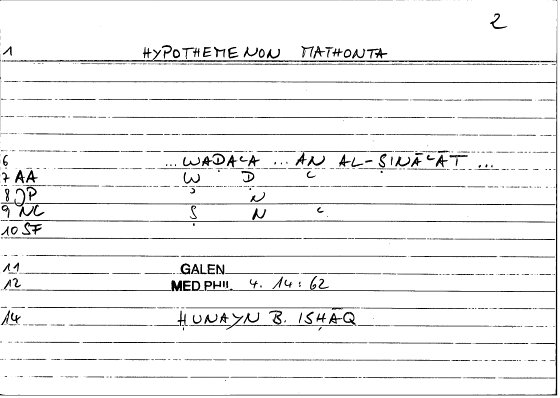 2
1 HYPOTHEMENON MATHONTA
6 ... WAḌAʿA ... AN AL-ṢINĀʿĀT ...
7 AA W Ḍ ʿ
8 JP ʾ N
9 NC Ṣ N ʿ
10 SF
11 GALEN
12 MED.PHIL. 4. 14:62
14 ḤUNAYN B. ISḤĀQ